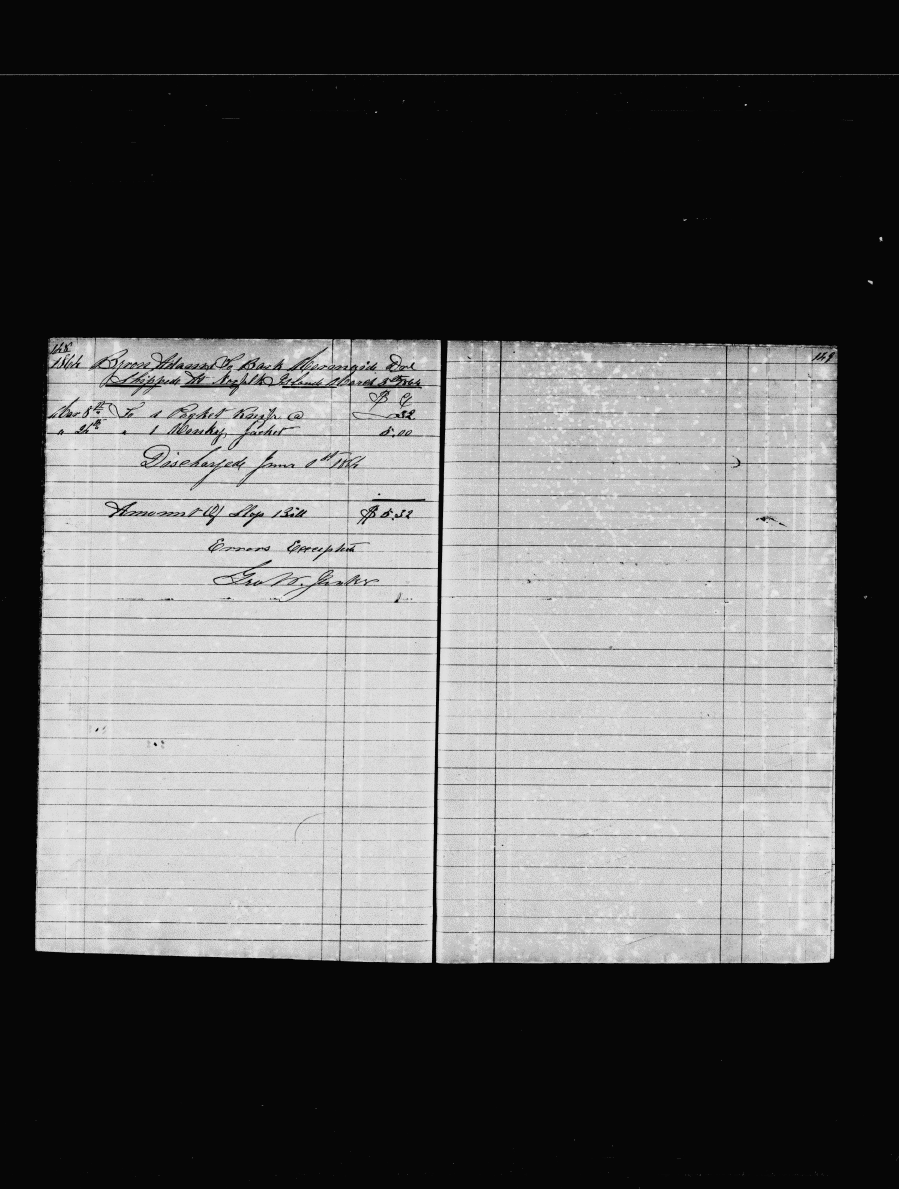 148
1864 Byron Adams To Bark Merengid Dr
Shipped At Norfolk Island March 5th 1864
$ C
Mar 8th To 1 Pocket Knife @ 32
" 24th " 1 Monkey Jacket 5.00
Discharged June 1st 1864
Amount Of Slop Bill $ 5.32
Errors Excepted
Geo W.
149